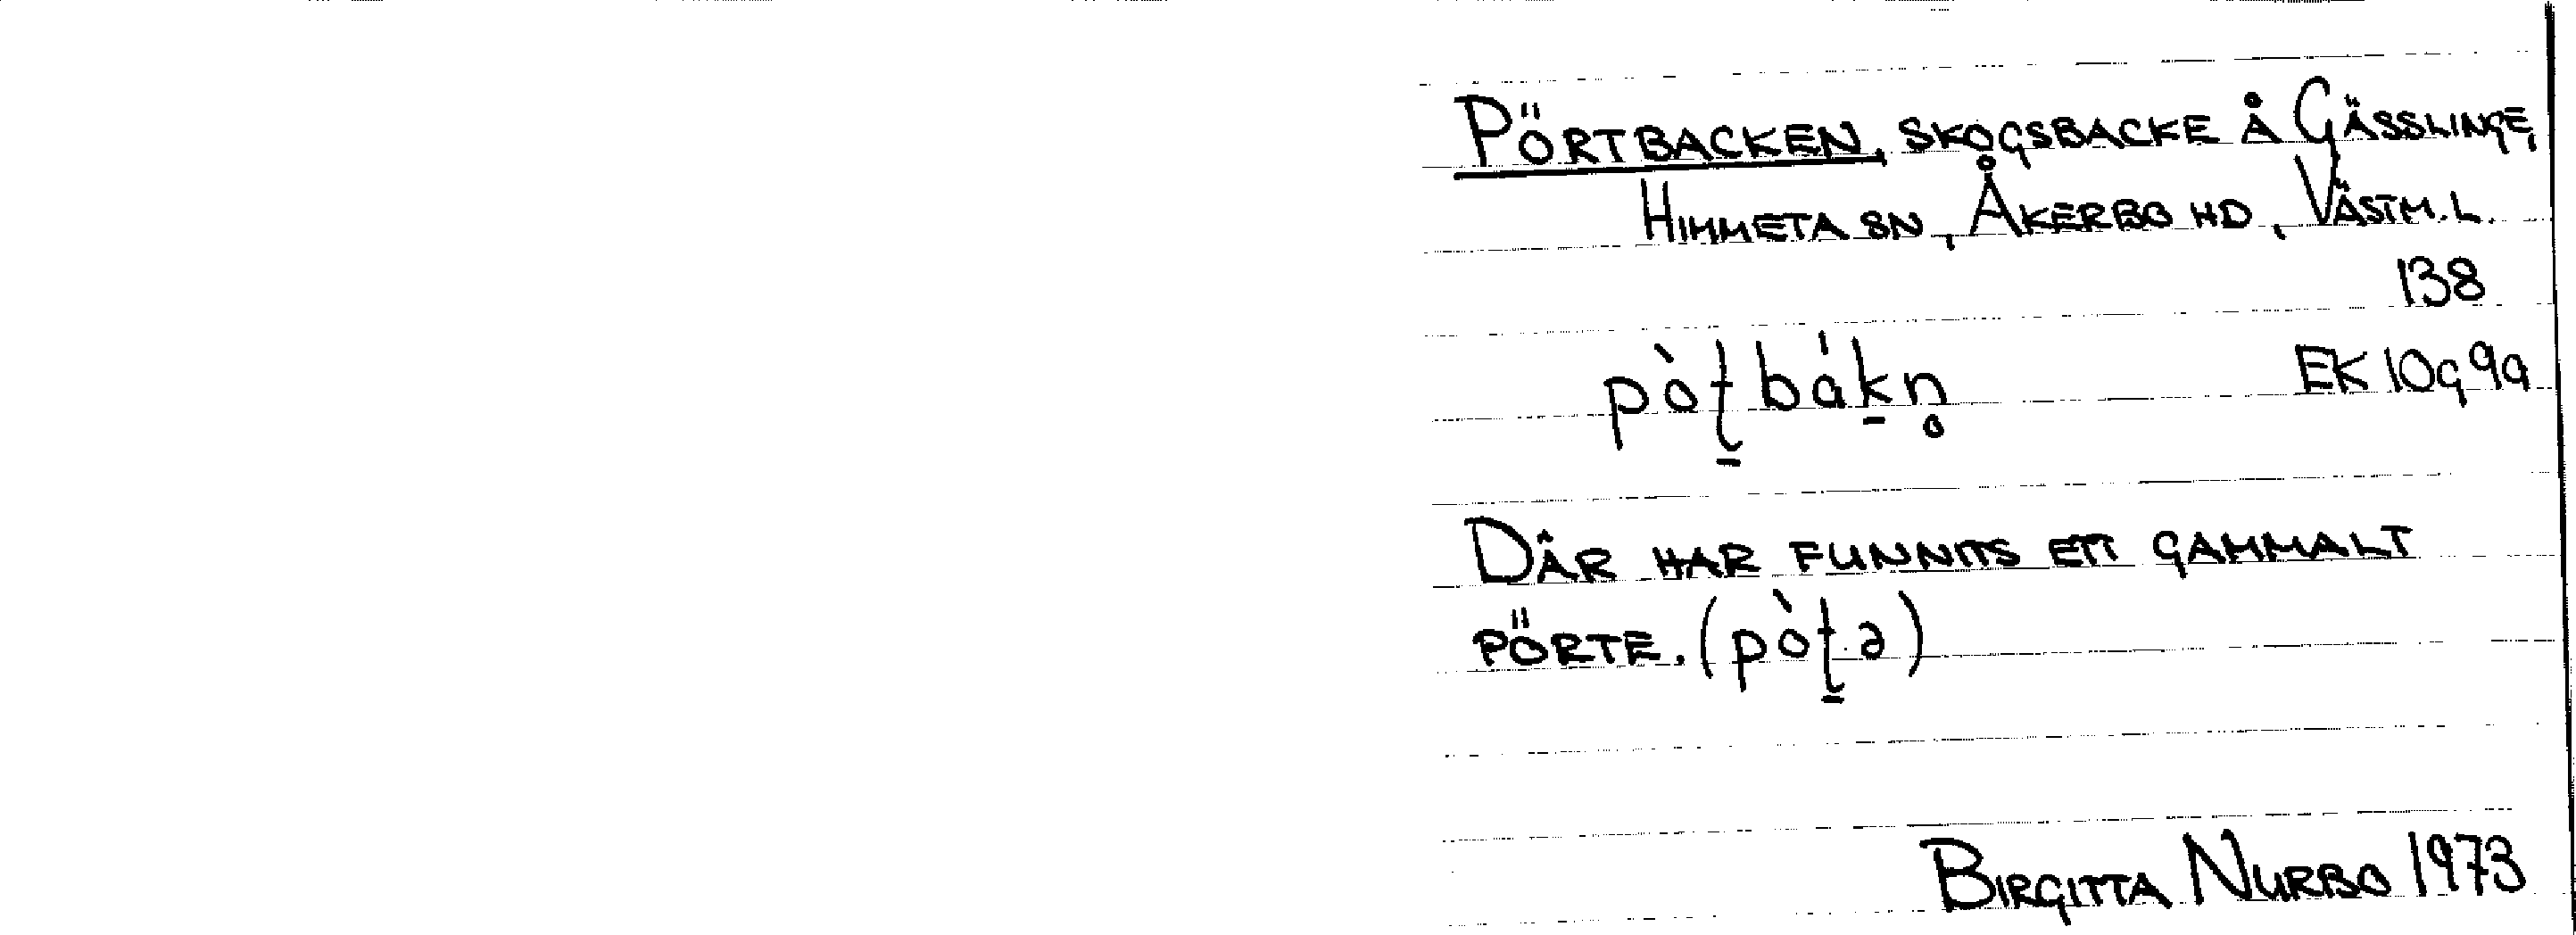 PÖRTBACKEN, SKOGSBACKE Å GÄSSLINGE,
HIMMETA SN, ÅKERBO HD, VÄSTM.L.
138
pòʈ̠bák̠n̥ EK 10g 9a
DÄR HAR FUNNITS ETT GAMMALT
PÖRTE. (pòʈ̠ə)
BIRGITTA NURBO 1973